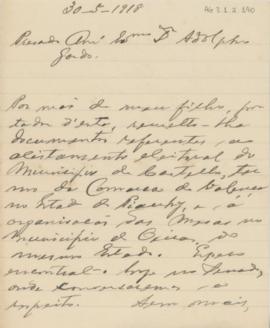 30-5-1918
AG 2.1.2.190
Presado Am.º Exmo Dr. Adolpho
Gordo.
Por mão de meu filho, por-
tador d'esta, remetto-lhe
documentos referentes ao
alistamento eleitoral do
Municipio de Castello, ter-
mo da Comarca de Valença
no Estado do Piauhy, e á
organisação das Mesas no
municipio de Oeiras, do
mesmo Estado. Espero
encontral-o hoje no Senado,
onde conversaremos a
respeito. Sem mais,